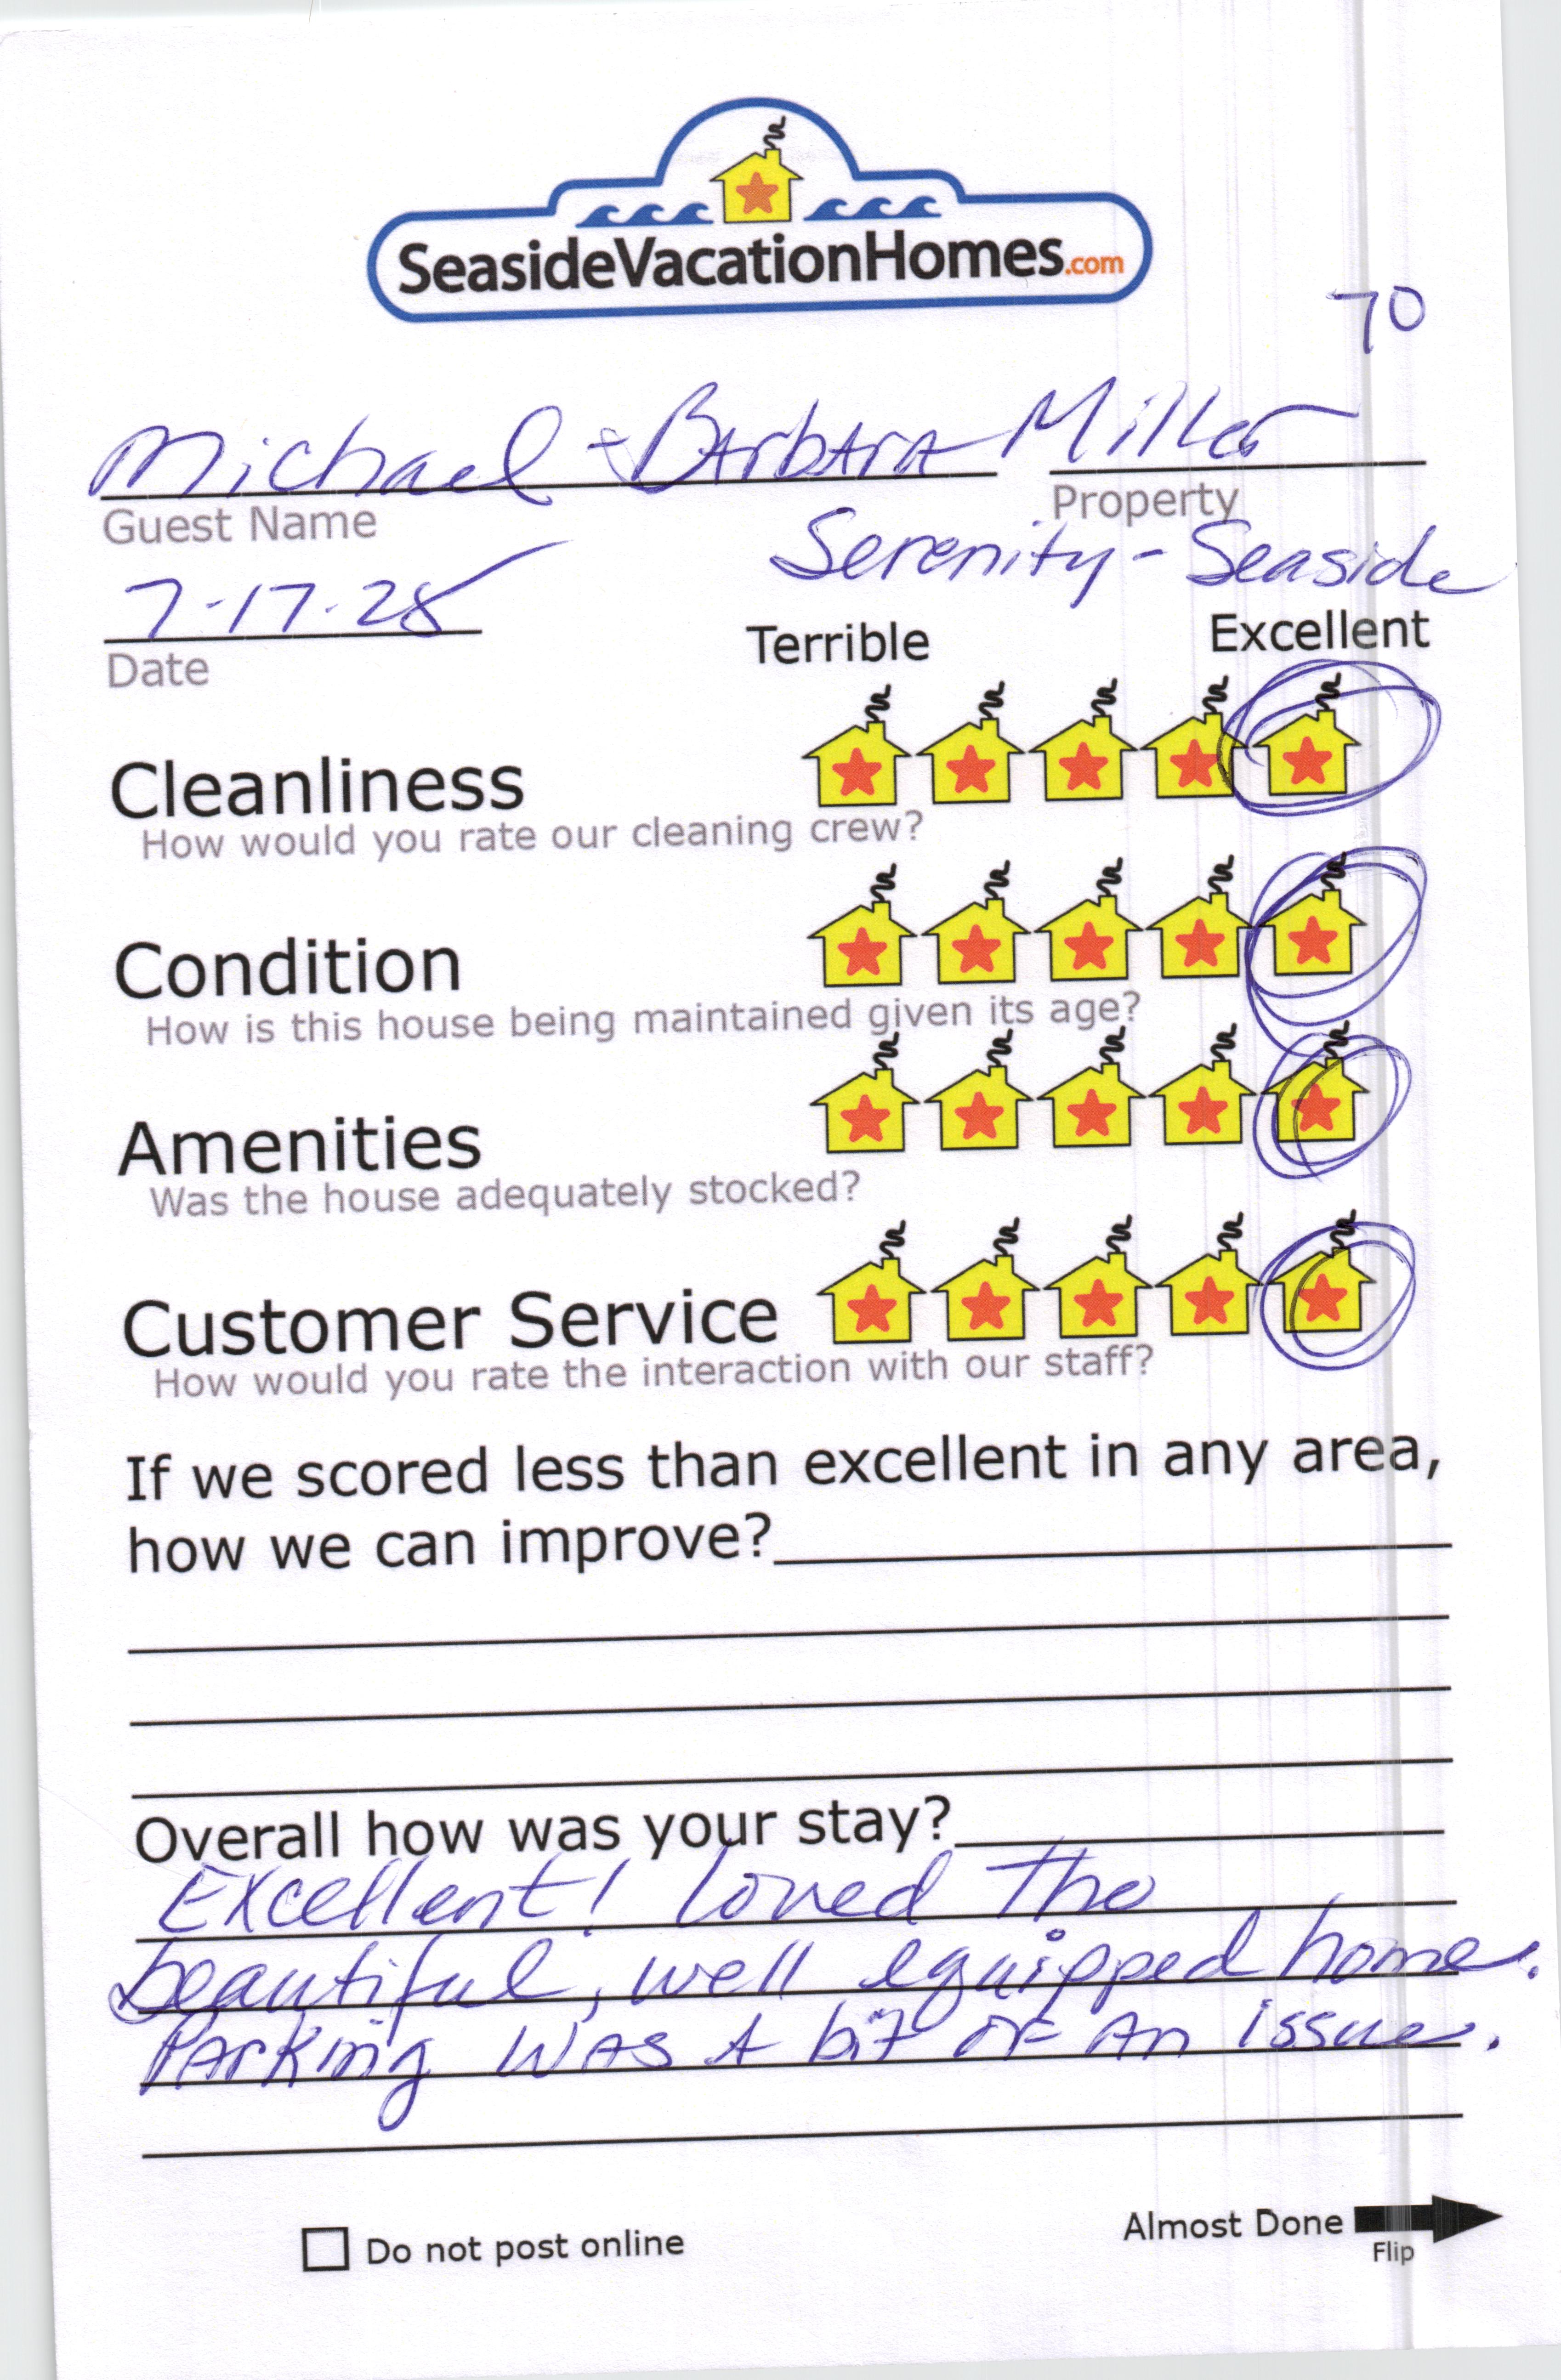 SeasideVacationHomes.com
70
Michael + Barbara Miller
Guest Name
Property
Serenity - Seaside
7-17-28
Date
Terrible Excellent
Cleanliness
How would you rate our cleaning crew?
Condition
How is this house being maintained given its age?
Amenities
Was the house adequately stocked?
Customer Service
How would you rate the interaction with our staff?
If we scored less than excellent in any area,
how we can improve?
Overall how was your stay?
Excellent! Loved the
beautiful, well equipped home.
Parking was a bit of an issue.
Do not post online
Almost Done
Flip